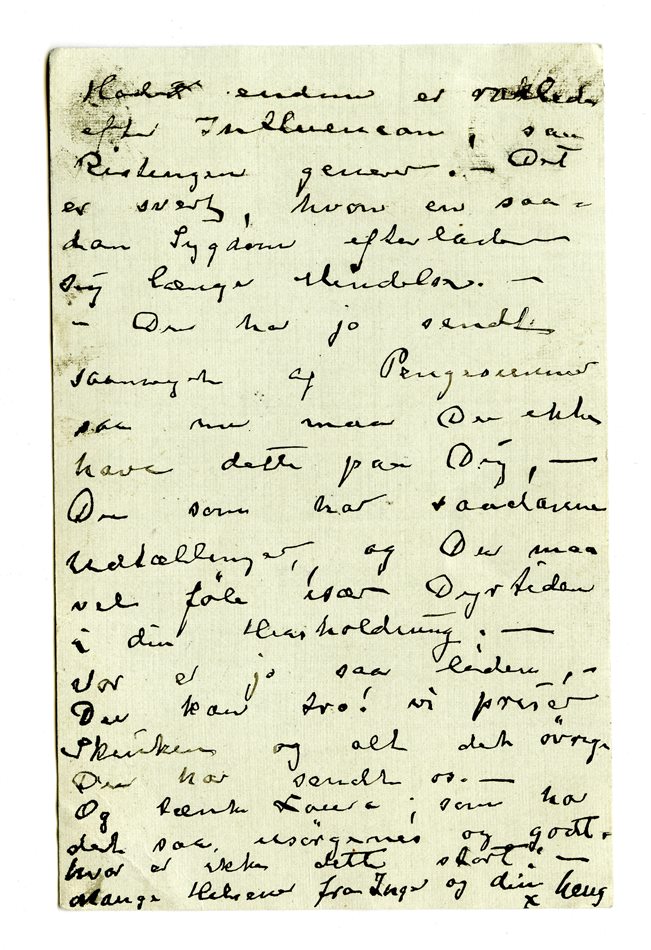 endnu er
efter Influenzaen, saa
Rystingen generer. – Det
er svert, hvor en saa=
dan Sygdom efterlader
sig længe Mindelser. –
– Du har jo sendt
af
saa nu maa Du ikke
have dette paa Dig, –
Du som har saadanne
Udtællinger, og Du maa
vel føle især Dyrtiden
i din Husholdning. –
Vor er jo saa liden, –
Du kan tro! vi priser
Skinken og alt det øvrige
Du har sendt os. –
Og tænk Laura, som har
det saa og godt.
hvor er ikke dette stort! –
Mange Hilsener fra Inger og din